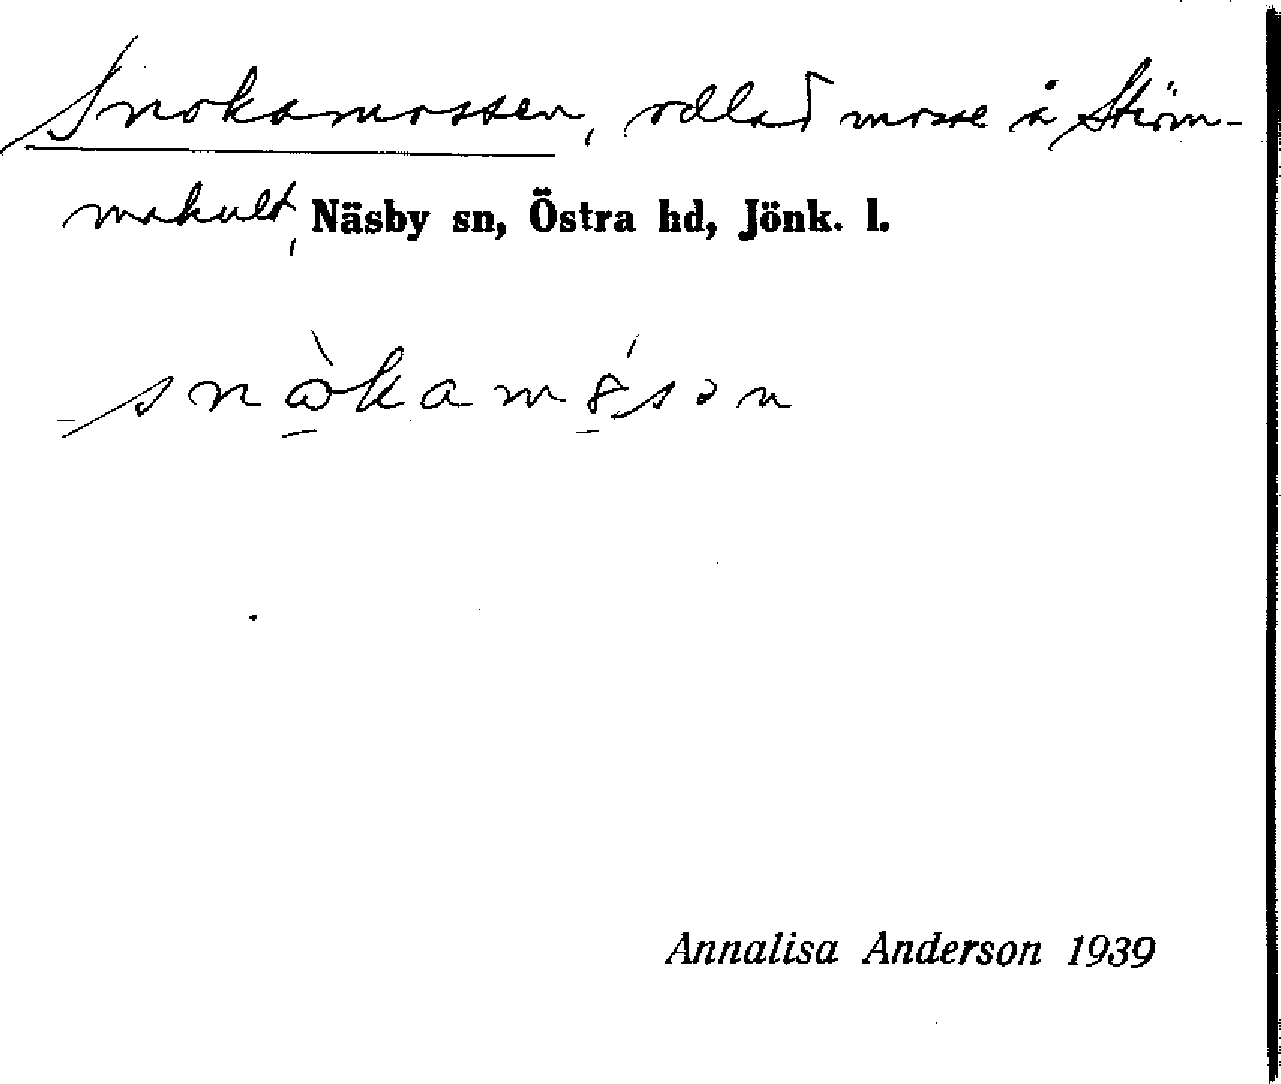 Snokamossen, odlad mosse å Stöm-
makult, Näsby sn, Östra hd, Jönk. l.
Annalisa Anderson 1939